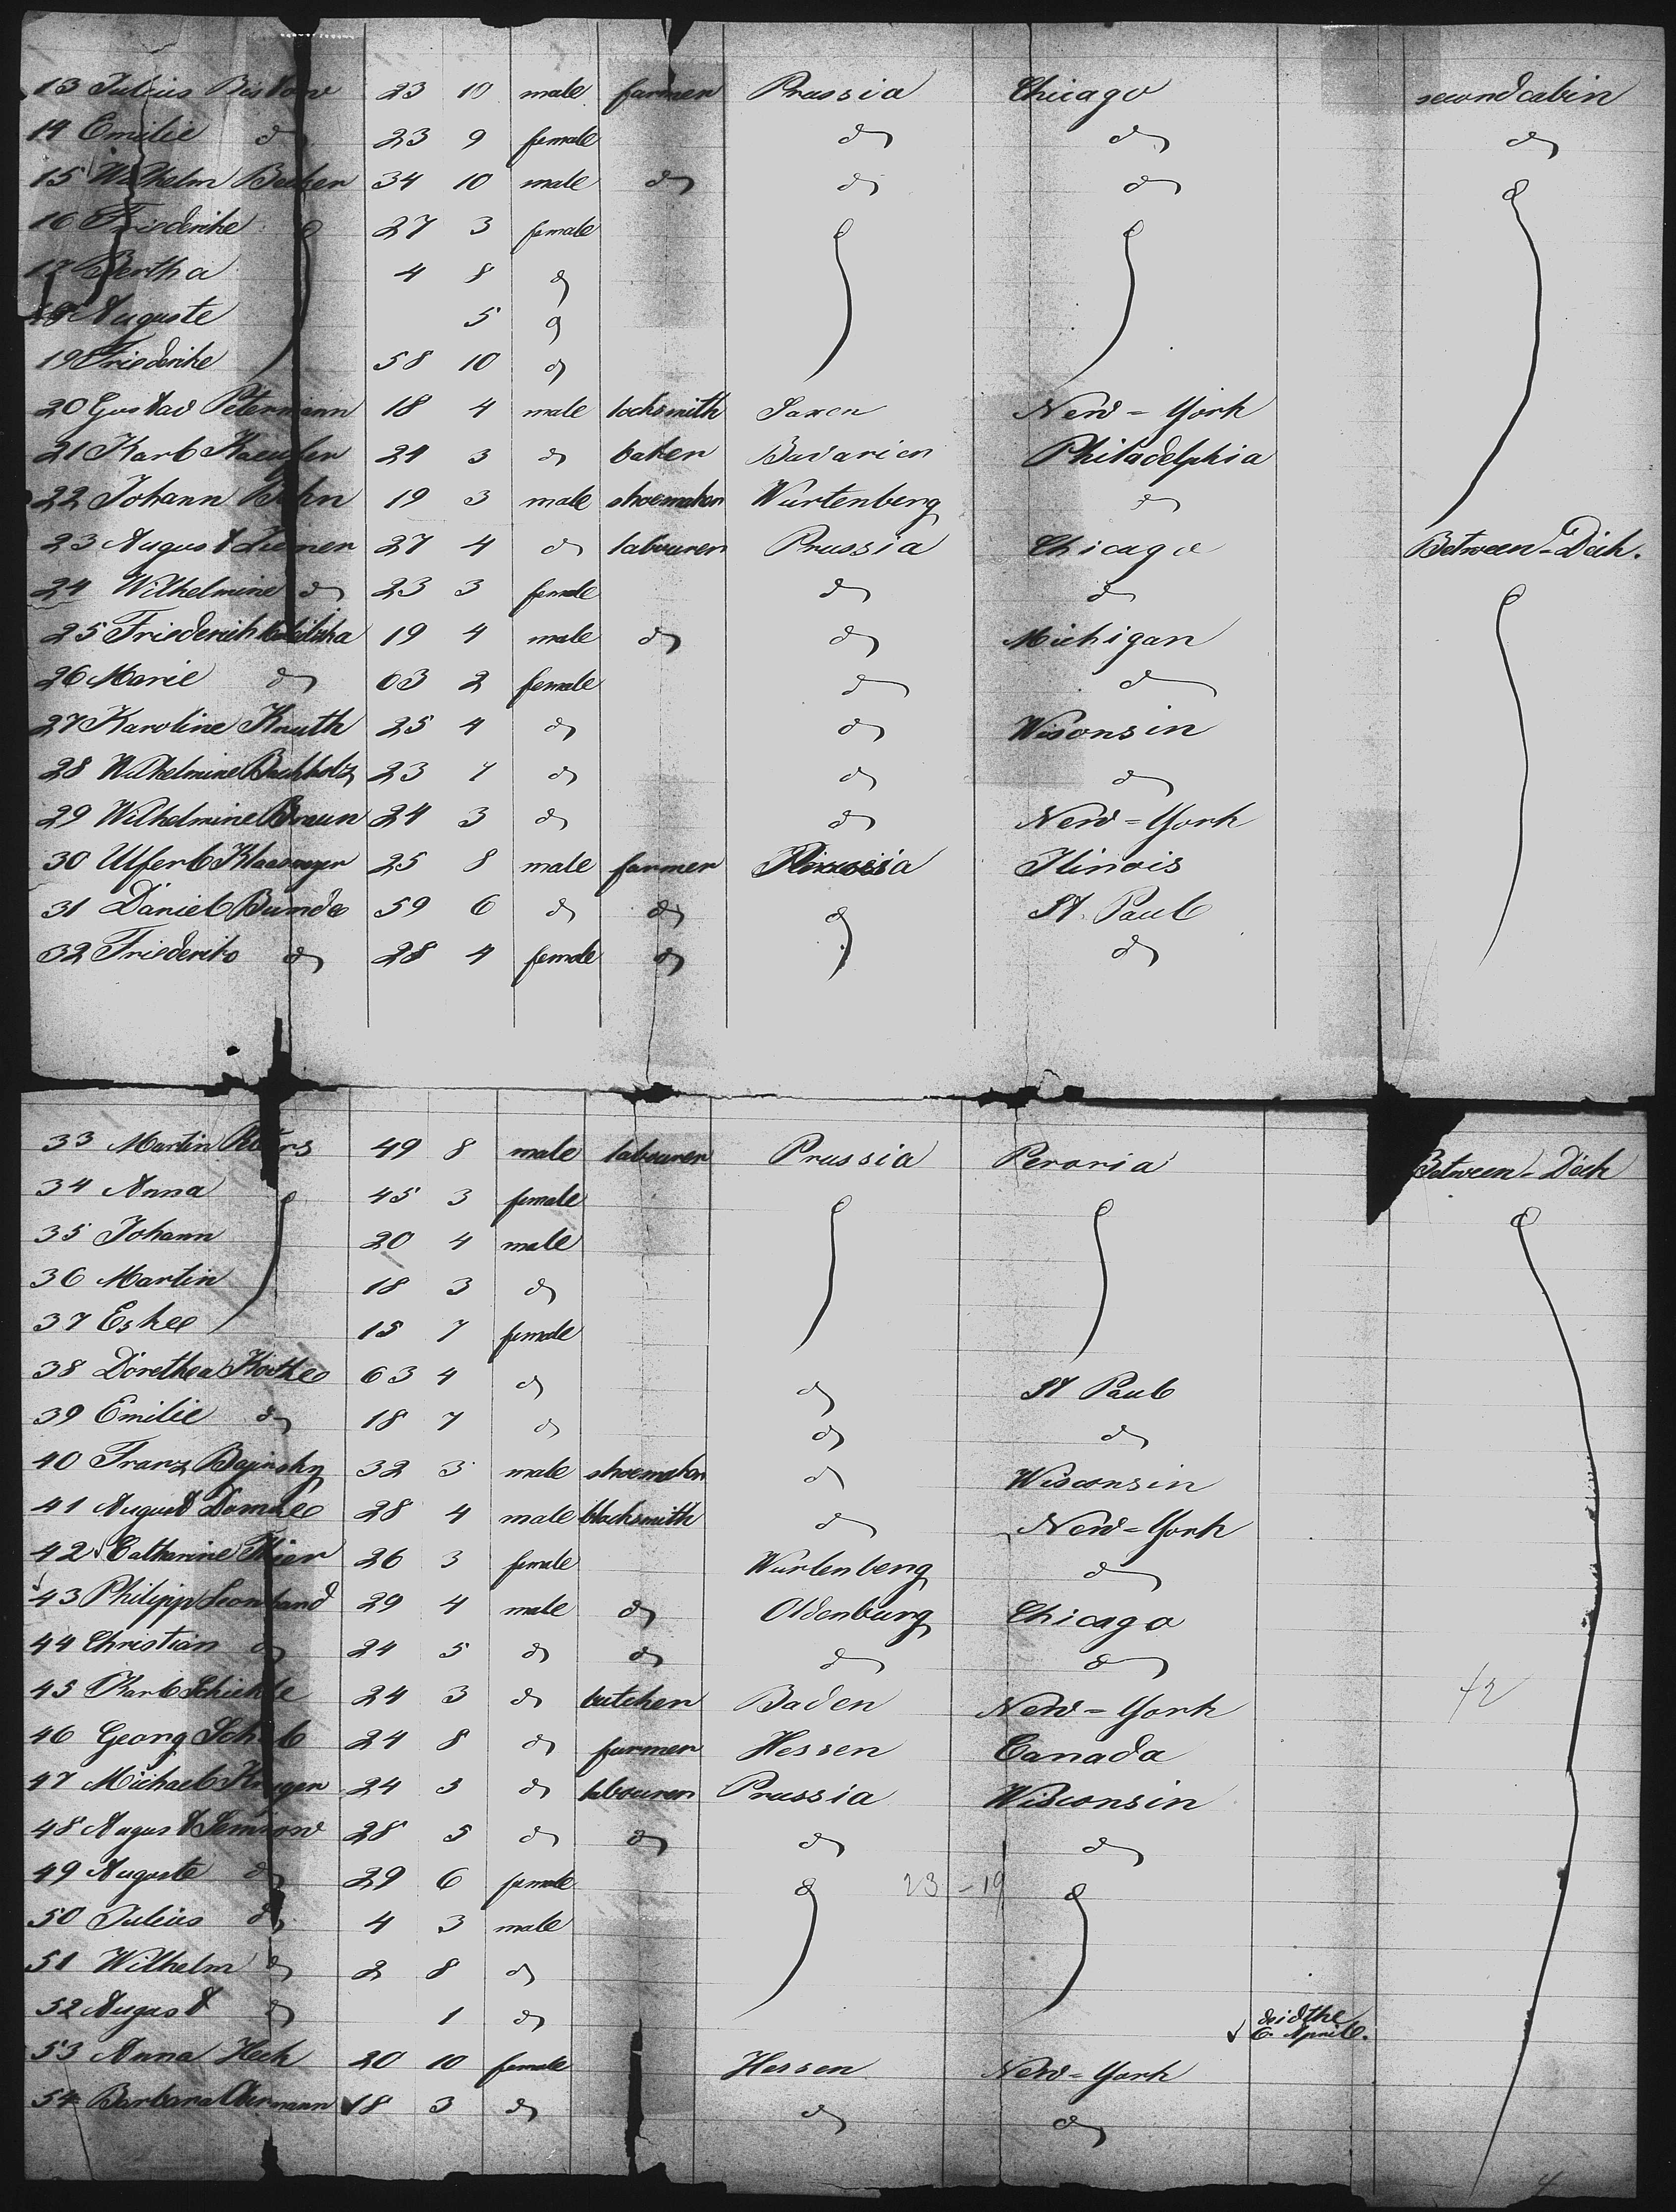 13 Julius Bistow 23 10 male farmer Prussia Chicago second cabin
14 Emilie do 23 9 female do do do
15 Wilhelm Becker 34 10 male do do do do
16 Friederike 27 3 female
17 Bertha 4 8 do
18 Auguste 5 do
19 Friederike 58 10 do
20 Gustav Petermann 18 4 male locksmith Saxen New=York
21 Karl Kaeufer 24 3 do baker Bavarien Philadelphia
22 Johann 19 3 male shoemaker Wurtenberg do
23 August 27 4 do labourer Prussia Chicago Between-Deck.
24 Wilhelmine do 23 3 female do do
25 Friederich 19 4 male do do Michigan
26 Marie do 63 2 female do do
27 Karoline Knuth 25 4 do do Wisonsin
28 Wilhelmine Buchholz 23 7 do do do
29 Wilhelmine Braun 24 3 do do New=York
30 Ulfert Klaasmeyer 25 8 male farmer Ilinois
31 Daniel Bunde 59 6 do do do St. Paul
32 Friederike do 28 4 female do do
33 Martin 49 8 male labourer Prussia Peroria Between-Deck
34 Anna 45 3 female
35 Johann 20 4 male
36 Martin 18 3 do
37 Eskee 15 7 female
38 Dorethea Koethe 63 4 do do St Paul
39 Emilie do 18 7 do do do
40 Franz Baginsky 32 3 male shoemaker do Wisconsin
41 August 28 4 male blacksmith do New=York
42 Catharine 26 3 female Wurtenberg do
43 Philipp Leonhard 29 4 male do Oldenburg Chicago
44 Christian do 24 5 do do do do
45 Karl Schickle 24 3 do butcher Baden New=York
46 Georg 24 8 do farmer Hessen Canada
47 Michael Kruger 24 3 do labourer Prussia Wisconsin
48 August 28 5 do do do do
49 Auguste do 29 6 female do 23-19 do
50 Julius do 4 3 male
51 Wilhelm do 2 8 do
52 August do 1 do deid the 6. April.
53 Anna Heck 20 10 female Hessen New=York
54 Barbara 18 3 do do do